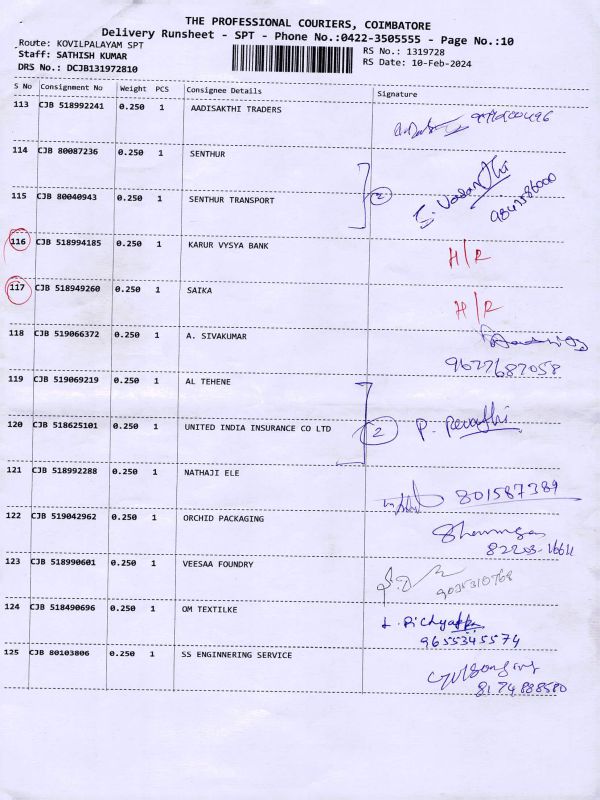 THE PROFESSIONAL COURIERS, COIMBATORE
Delivery Runsheet - SPT - Phone No.:0422-3505555 - Page No.:10
Route: KOVILPALAYAM SPT
RS No.: 1319728
Staff: SATHISH KUMAR
RS Date: 10-Feb-2024
DRS No.: DCJB131972810
S No Consignment No Weight PCS Consignee Details Signature
113 CJB 518992241 0.250 1 AADISAKTHI TRADERS
114 CJB 80087236 0.250 1 SENTHUR
115 CJB 80040943 0.250 1 SENTHUR TRANSPORT 2
116 CJB 518994185 0.250 1 KARUR VYSYA BANK H/R
117 CJB 518949260 0.250 1 SAIKA H/R
118 CJB 519066372 0.250 1 A. SIVAKUMAR
9627687058
119 CJB 519069219 0.250 1 AL TEHENE
120 CJB 518625101 0.250 1 UNITED INDIA INSURANCE CO LTD 2 P. Revathi
121 CJB 518992288 0.250 1 NATHAJI ELE 801587389
122 CJB 519042962 0.250 1 ORCHID PACKAGING
123 CJB 518990601 0.250 1 VEESAA FOUNDRY
124 CJB 518490696 0.250 1 OM TEXTILKE L. Pichyappa
9655345574
125 CJB 80103806 0.250 1 SS ENGINNERING SERVICE
8174888580